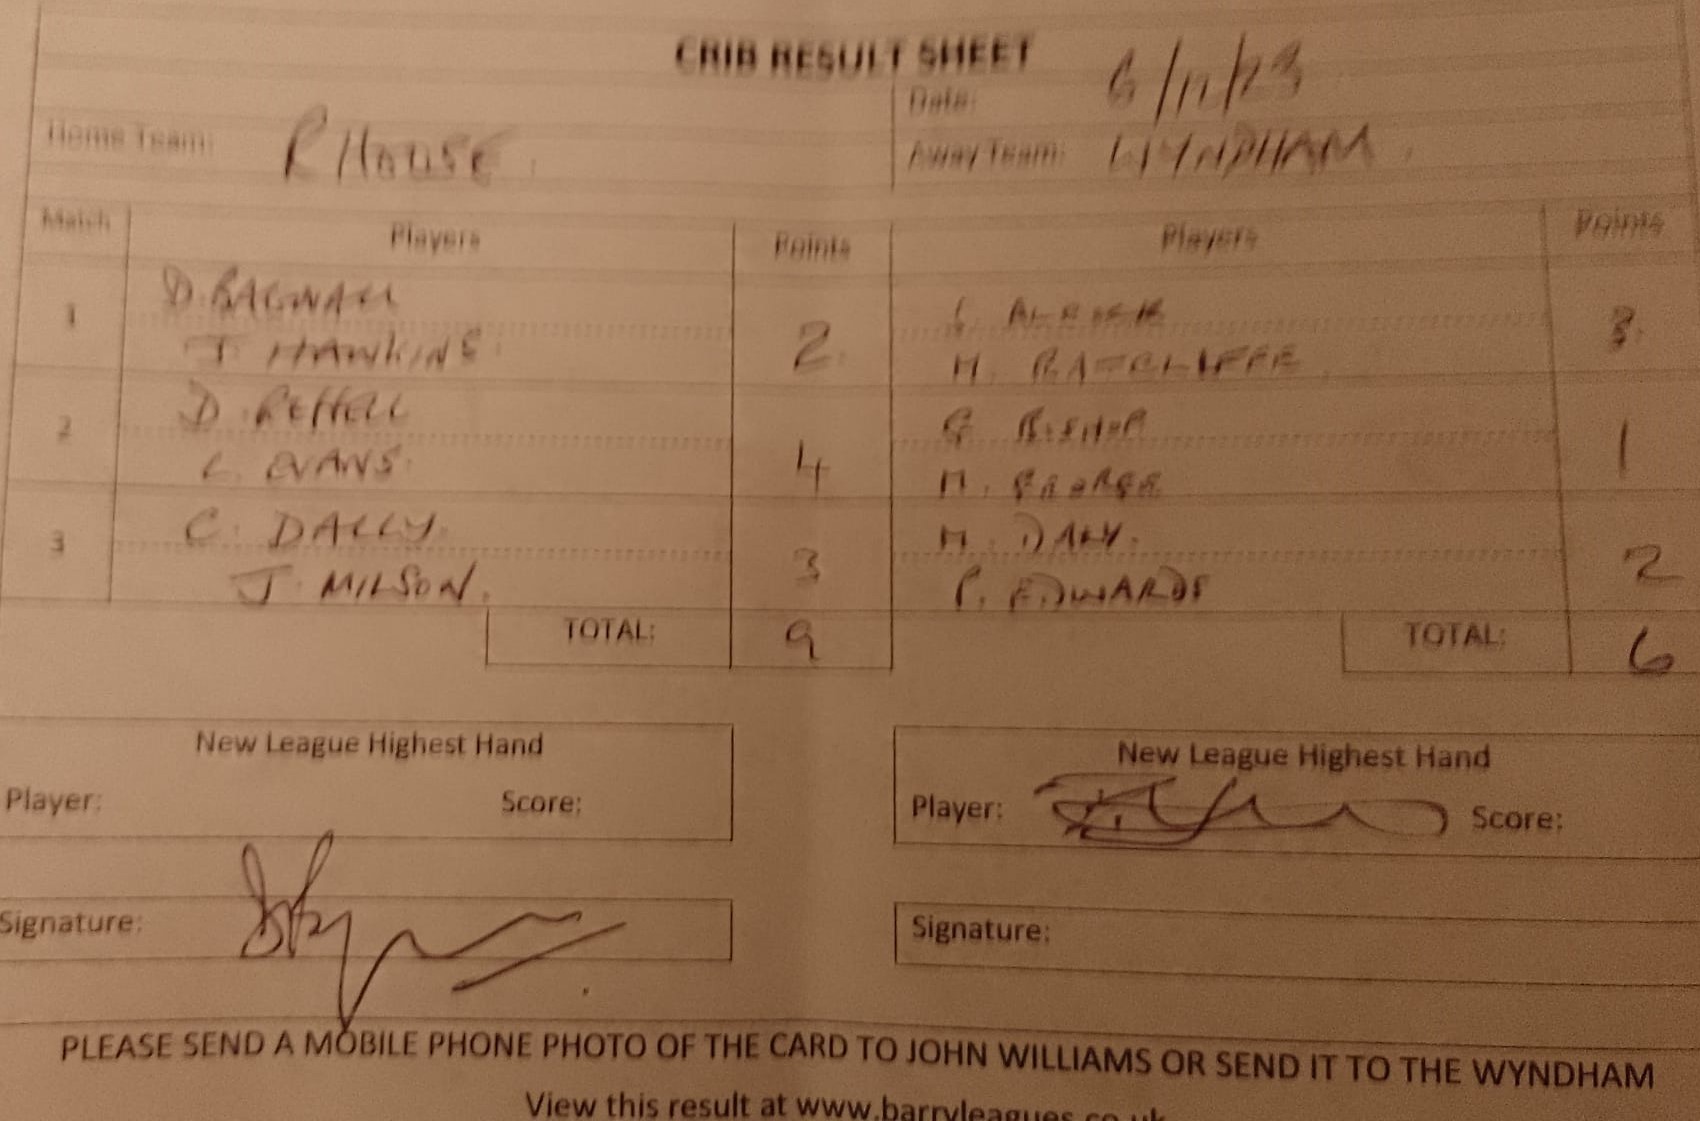 CRIB RESULT SHEET
Date: 6/11/23
Home Team: R HOUSE
Away Team: WYNDHAM
Match Players Points Players Points
1 D. BAGNALL
J. HAWKINS 2 3
M. RATCLIFFE
2 D. REFFELL G BISHOP
L. EVANS 4 1
M. GEORGE
3 C. DALLY M. DALY
J. MILSON 3 P. EDWARDS 2
TOTAL: 9 TOTAL: 6
New League Highest Hand New League Highest Hand
Player: Score: Player: Score:
Signature: Signature:
PLEASE SEND A MOBILE PHONE PHOTO OF THE CARD TO JOHN WILLIAMS OR SEND IT TO THE WYNDHAM
View this result at www.barryleagues.co.uk